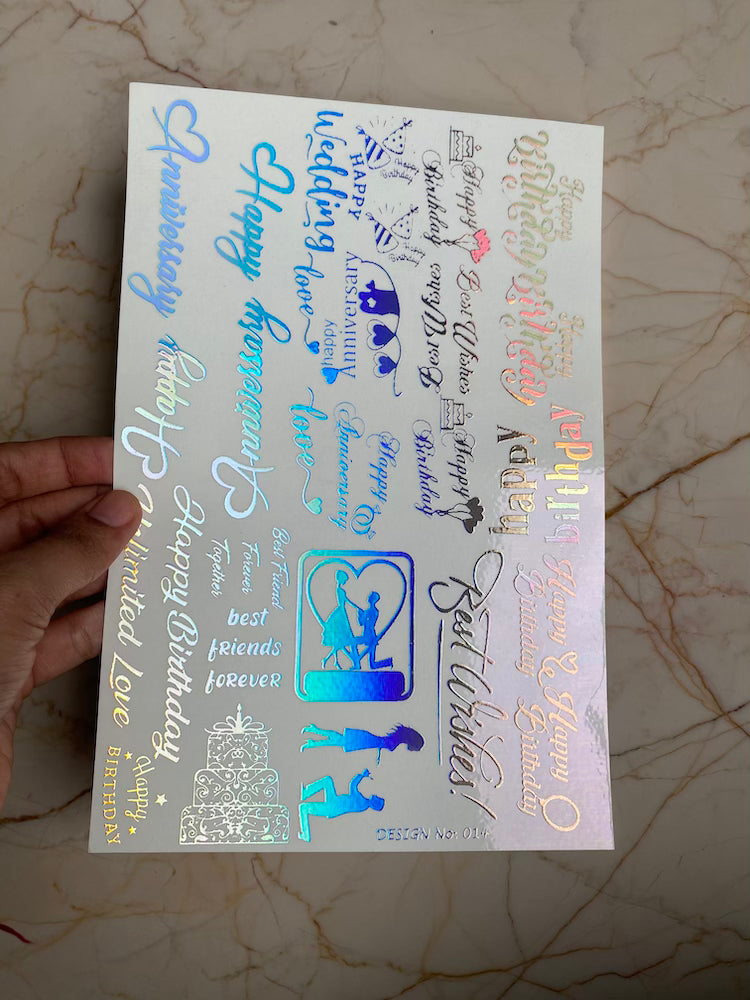 Happy
Birthday
Happy
Birthday
Happy
birthday
Happy
Birthday
Happy
Birthday
Happy
Birthday
Best Wishes
Best Wishes
Happy
Birthday
Best Wishes!
Happy
Birthday
Happy
Birthday
HAPPY
Wedding
Happy
Anniversary
Happy
Anniversary
love
love
Happy
Anniversary
Happy
Anniversary
Best Friend
Forever
Together
best
friends
forever
Happy Birthday
Unlimited Love
Happy
BIRTHDAY
DESIGN No: 014